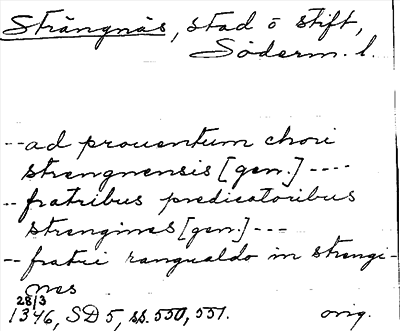 Strängnäs, stad o stift,
Söderm. l.
-- ad prouentum chori
strengnensis [gen.] ----
-- fratribus predicatoribus
strengines [gen.] ---
-- fratri rangualdo in strengi-
nes
28/3
1346, SD 5, ss. 550, 551. orig.